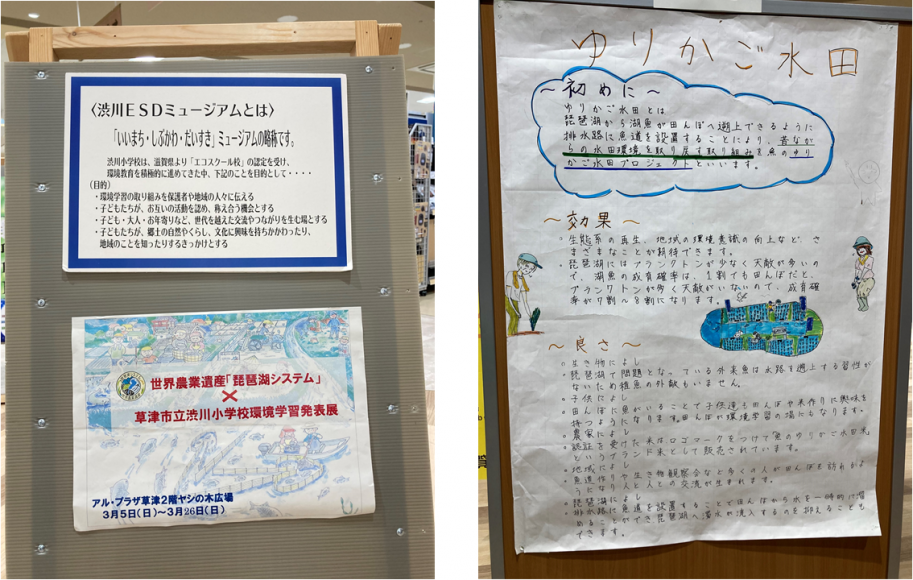 〈渋川ESDミュージアムとは〉
「いいまち・しぶかわ・だいすき」ミュージアムの略称です。
渋川小学校は、滋賀県より「エコスクール校」の認定を受け、
環境教育を積極的に進めてきた中、下記のことを目的として・・・・
(目的)
・環境学習の取り組みを保護者や地域の人々に伝える
・子どもたちが、お互いの活動を認め、称え合う機会とする
・子ども・大人・お年寄りなど、世代を越えた交流やつながりを生む場とする
・子どもたちが、郷土の自然やくらし、文化に興味を持ちかかわったり、
地域のことを知ったりするきっかけとする
世界農業遺産「琵琶湖システム」
×
草津市立渋川小学校環境学習発表展
アル・プラザ草津2階ヤシの木広場
3月5日(日)~3月26日(日)
ゆりかご水田
~初めに~
ゆりかご水田とは
琵琶湖から湖魚が田んぼへ遡上できるように
排水路に魚道を設置することにより、昔なが
らの水田環境を取り戻す取り組みを魚のゆり
かご水田プロジェクトといいます。
~効果~
○生態系の再生、地域の環境意識の向上など、さ
まざまなことが期待できます。
○琵琶湖にはプランクトンが少なく天敵が多いの
で、湖魚の成育確率は、1割でも田んぼだと、
プランクトンが多く天敵がいないので、成育確
率が7割~8割になります。
~良さ~
○生き物によし
○琵琶湖で問題となっている外来魚は水路を遡上する習性が
ないため稚魚の外敵もいません。
○子供によし
○田んぼに魚がいることで子供達も田んぼや米作りに興味を
持つようになります。田んぼが環境学習の場にもなります。
○農家によし
○認証を受けた米はロゴマークをつけて「魚のゆりかご水田米」
というブランド米として販売されています。
○地域によし
○魚道作りや生き物観察会など多くの人が田んぼを訪れるよ
うになり人と人との交流が生まれます。
○琵琶湖によし
○排水路に魚道を設置することで田んぼから水を一時的に溜
めることができ琵琶湖へ濁水が流入するのを抑えることも
できます。